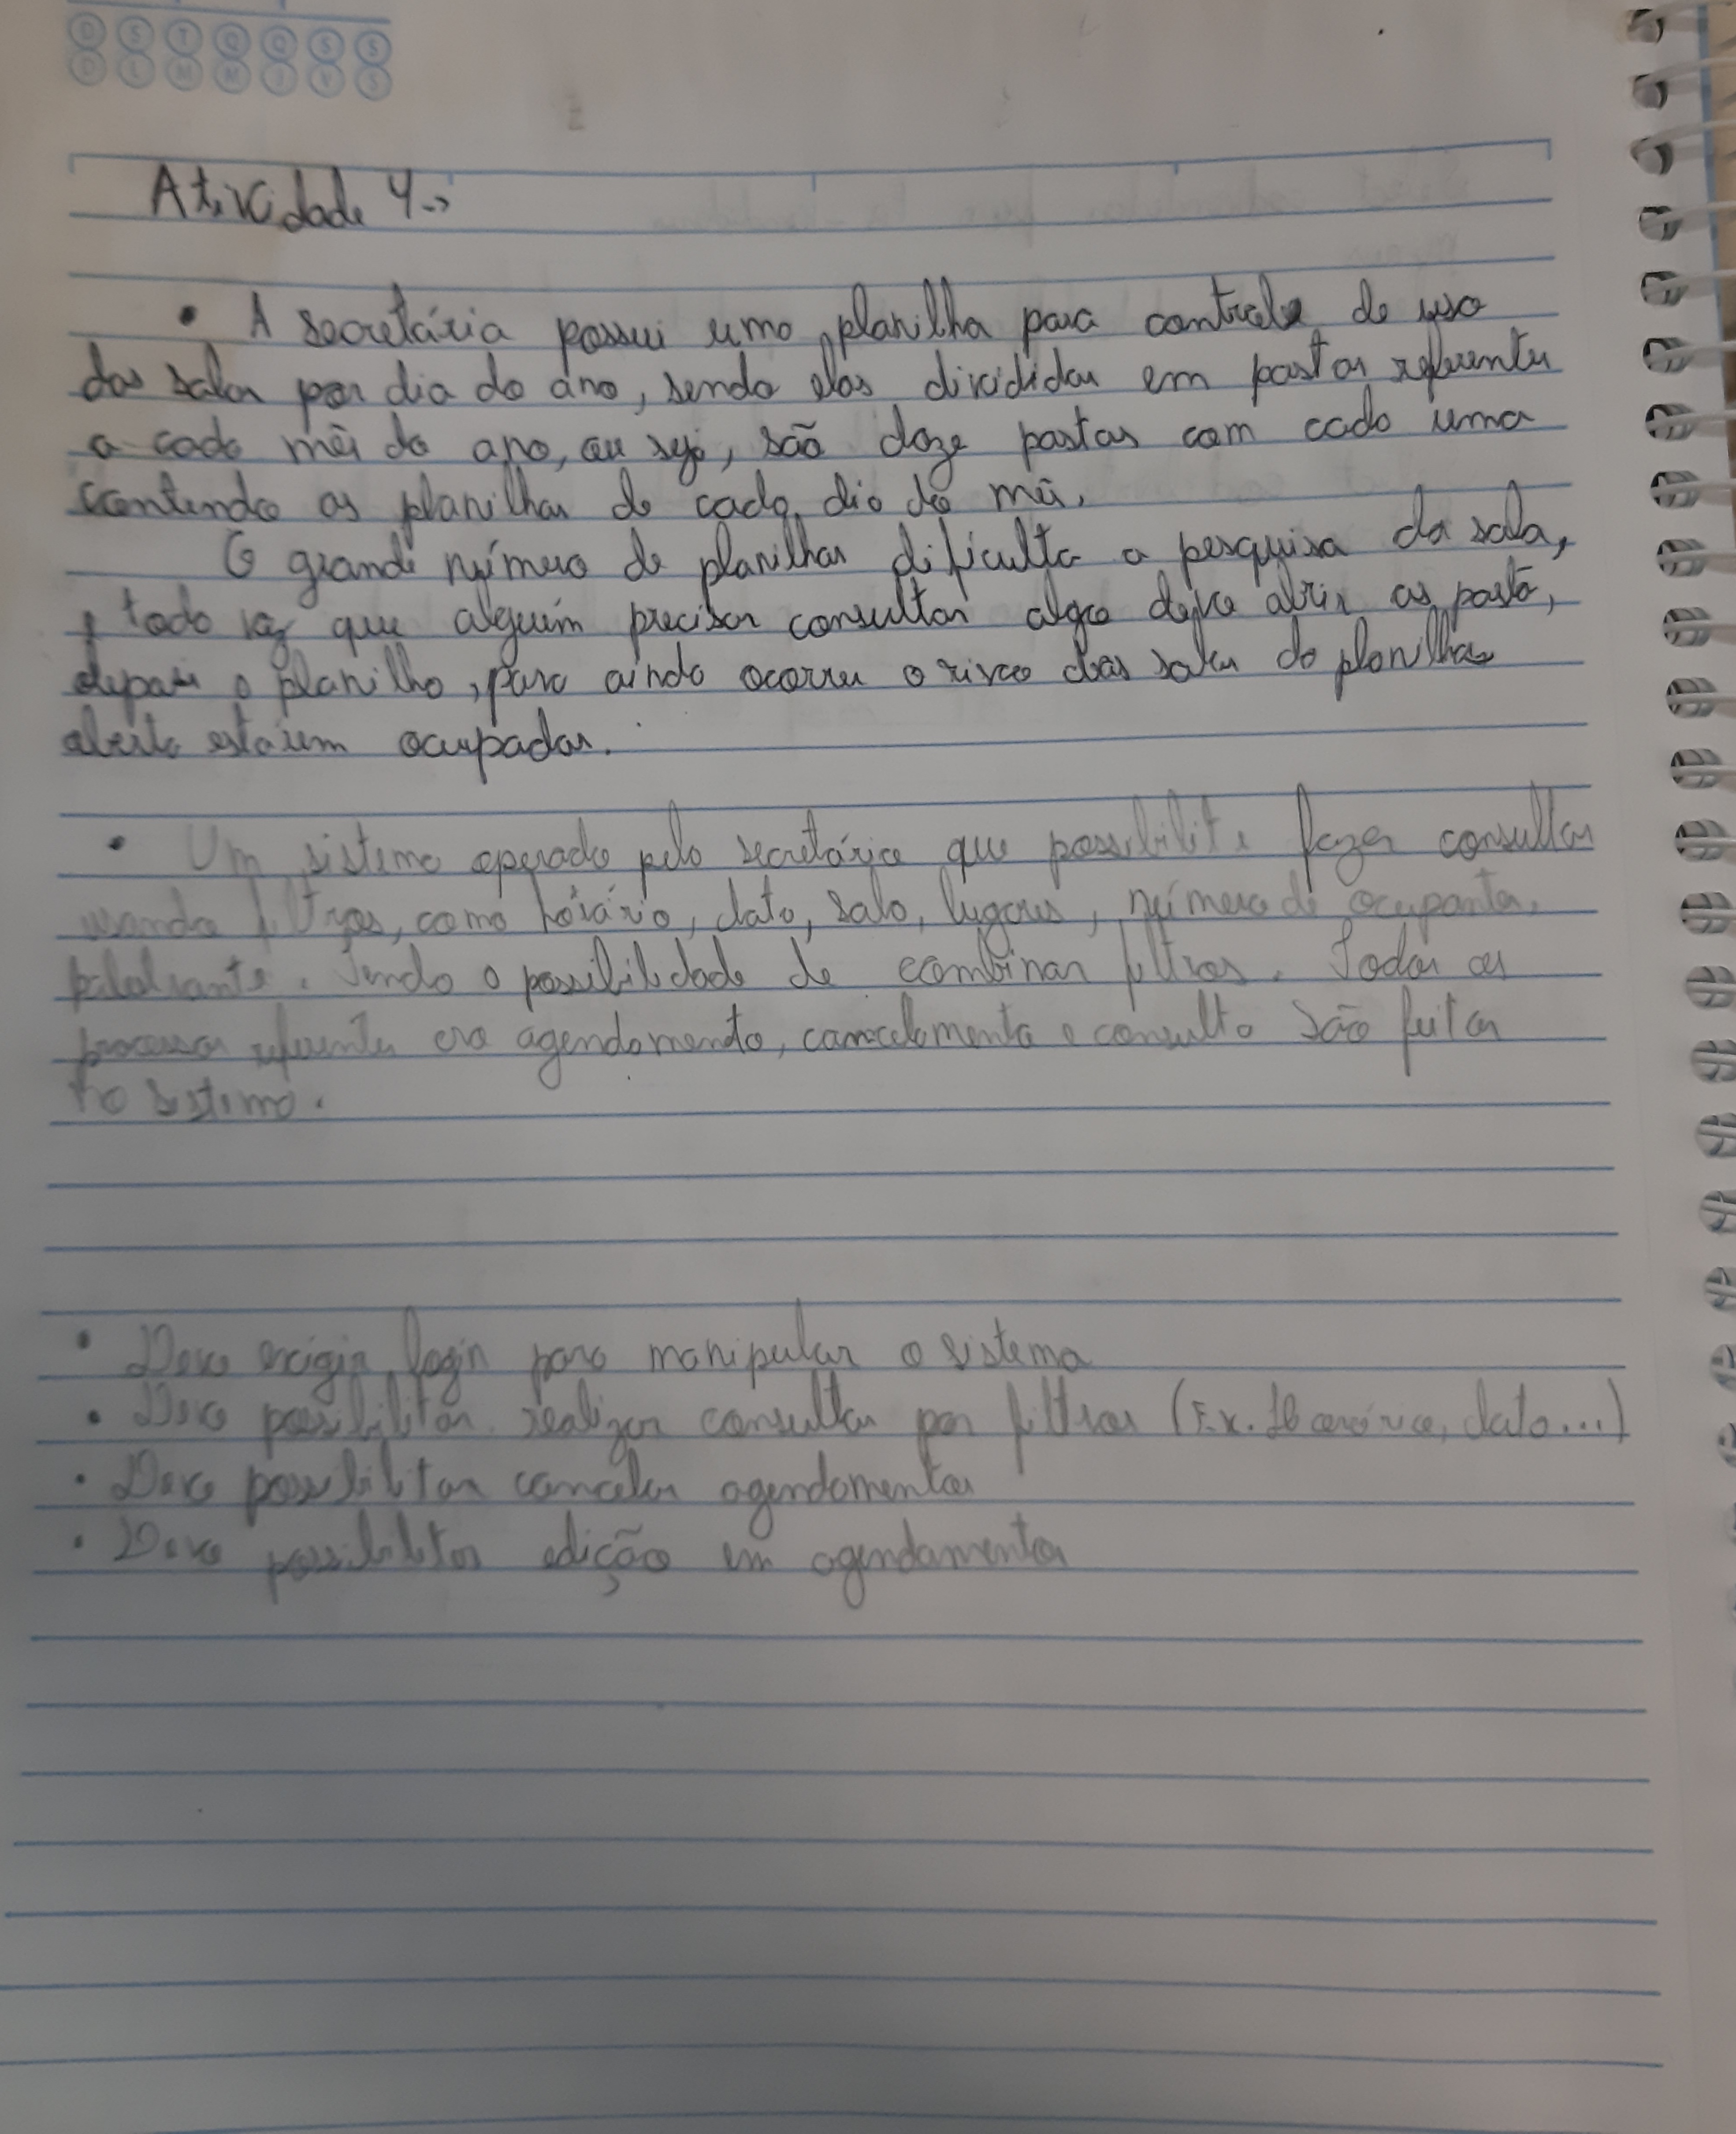 D S T Q Q S S
D L M M J V S
Atividade 4->
• A secretária possui uma planilha para controle de uso
das salas por dia do ano, sendo elas divididas em pastas referentes
a cada mês do ano, ou seja, são doze pastas com cada uma
contendo as planilhas de cada dia do mês.
O grande número de planilhas dificulta a pesquisa da sala,
toda vez que alguém precisar consultar algo deve abrir as pasta,
depois a planilha, para ainda ocorrer o risco das salas da planilha
aberta estarem ocupadas.
• Um sistema operado pela secretária que possibilite fazer consultas
usando filtros, como horário, data, sala, lugares, número de ocupantes,
palestrante. Tendo a possibilidade de combinar filtros. Todos os
processos referentes ao agendamento, cancelamento e consulta são feitas
no sistema.
• Deve exigir login para manipular o sistema
• Deve possibilitar realizar consultas por filtros (Ex. data...)
• Deve possibilitar cancelar agendamentos
• Deve possibilitar edição em agendamentos